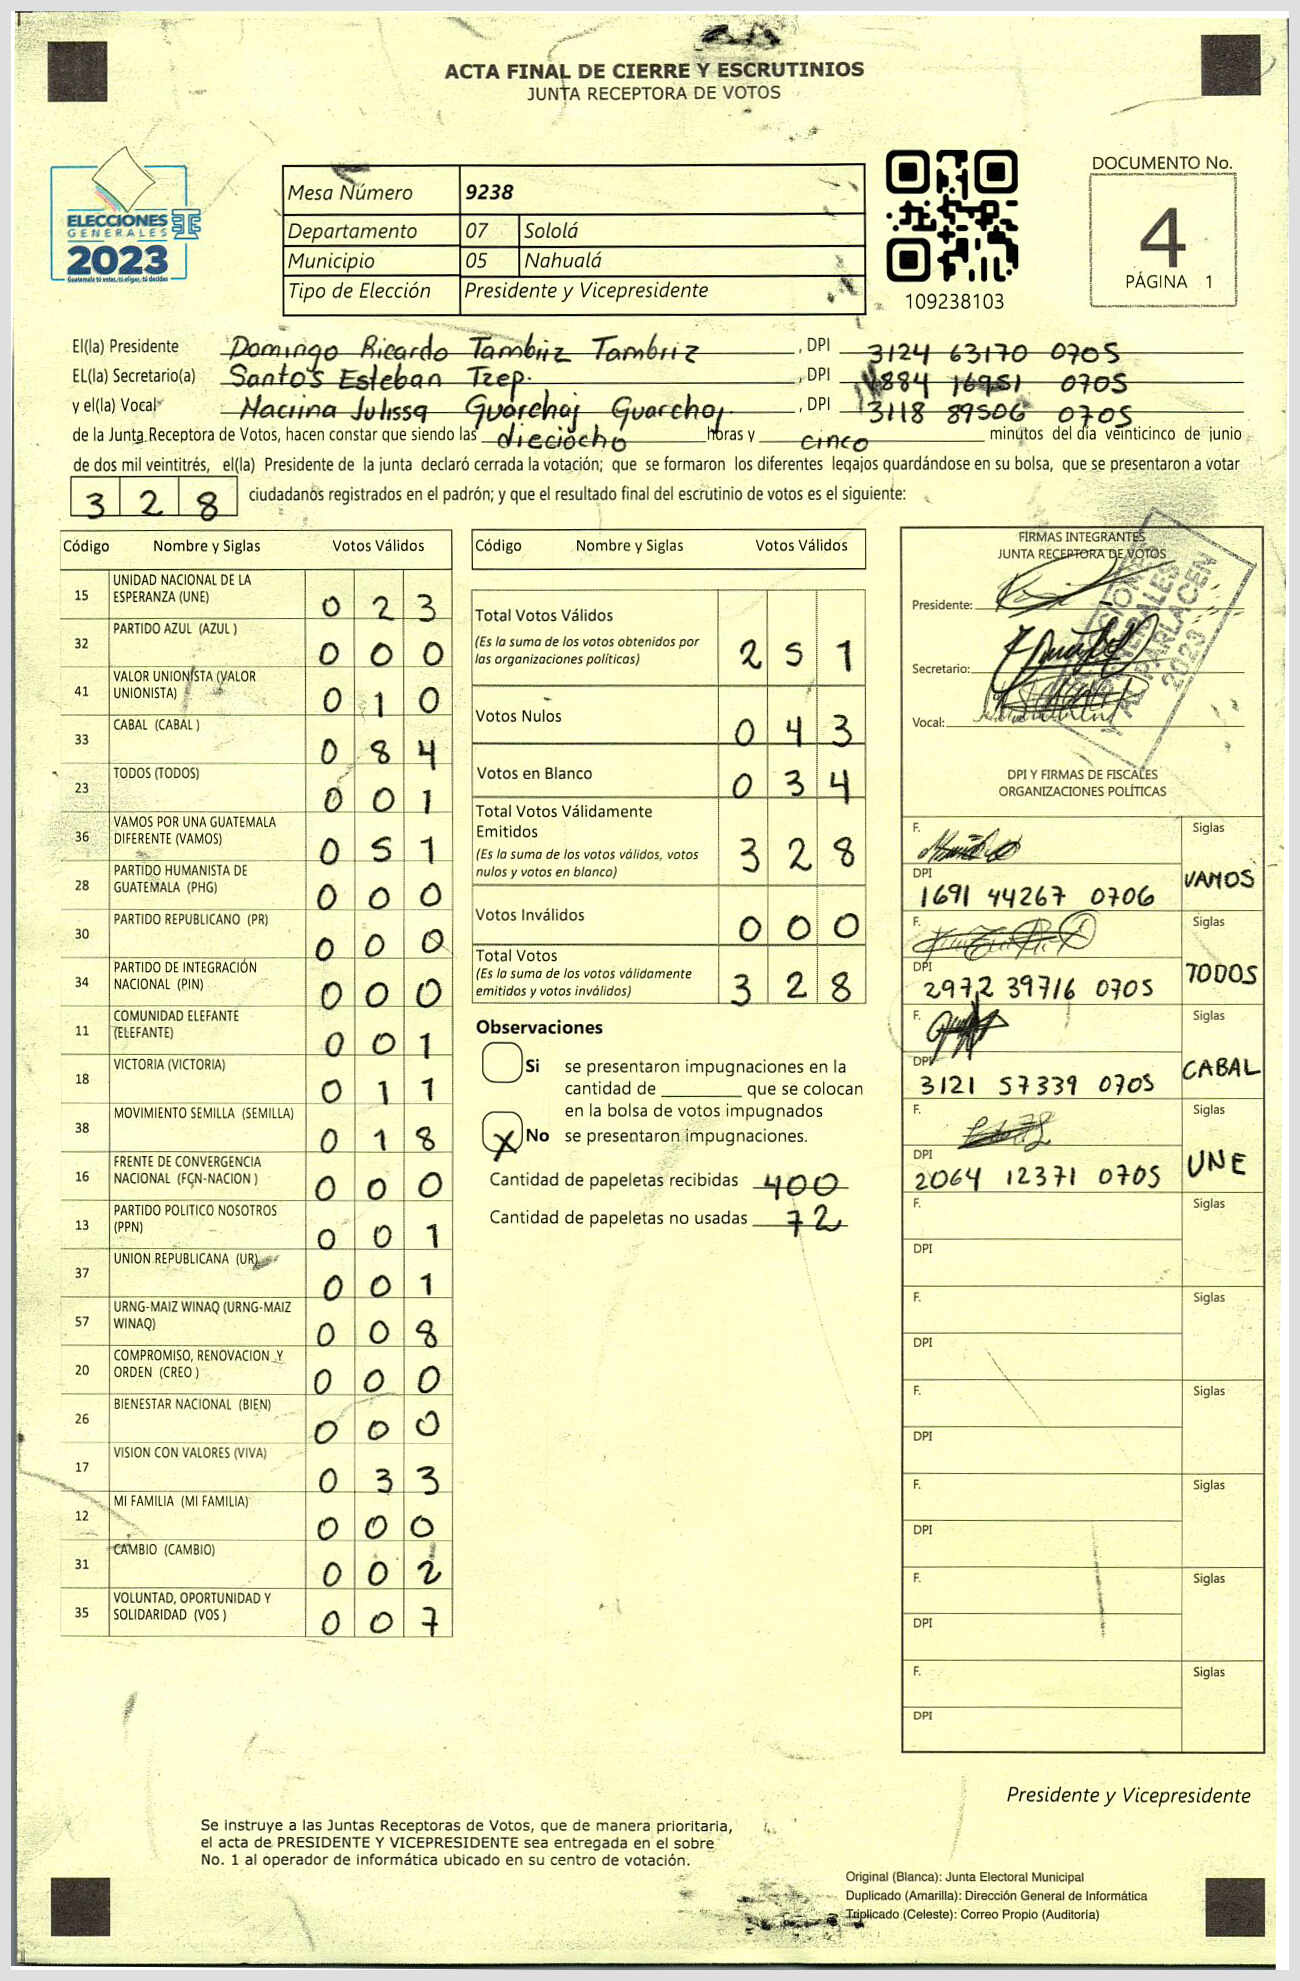 ACTA FINAL DE CIERRE Y ESCRUTINIOS
JUNTA RECEPTORA DE VOTOS
ELECCIONES
GENERALES
2023
Guatemala tú votas, tú eliges, tú decides
Mesa Número 9238
Departamento 07 Sololá
Municipio 05 Nahualá
Tipo de Elección Presidente y Vicepresidente
109238103
DOCUMENTO No.
4
PÁGINA 1
El(la) Presidente Domingo Ricardo Tambriz Tambriz, DPI 3124 63170 0705
EL(la) Secretario(a) Santos Esteban Tzep., DPI 1884 16951 0705
y el(la) Vocal Julissa Guarchaj Guarchaj., DPI 3118 89506 0705
de la Junta Receptora de Votos, hacen constar que siendo las dieciocho horas y cinco minutos del día veinticinco de junio
de dos mil veintitrés, el(la) Presidente de la junta declaró cerrada la votación; que se formaron los diferentes legajos guardándose en su bolsa, que se presentaron a votar
328 ciudadanos registrados en el padrón; y que el resultado final del escrutinio de votos es el siguiente:
Código Nombre y Siglas Votos Válidos
15 UNIDAD NACIONAL DE LA ESPERANZA (UNE) 0 2 3
32 PARTIDO AZUL (AZUL ) 0 0 0
41 VALOR UNIONISTA (VALOR UNIONISTA) 0 1 0
33 CABAL (CABAL ) 0 8 4
23 TODOS (TODOS) 0 0 1
36 VAMOS POR UNA GUATEMALA DIFERENTE (VAMOS) 0 5 1
28 PARTIDO HUMANISTA DE GUATEMALA (PHG) 0 0 0
30 PARTIDO REPUBLICANO (PR) 0 0 0
34 PARTIDO DE INTEGRACIÓN NACIONAL (PIN) 0 0 0
11 COMUNIDAD ELEFANTE (ELEFANTE) 0 0 1
18 VICTORIA (VICTORIA) 0 1 1
38 MOVIMIENTO SEMILLA (SEMILLA) 0 1 8
16 FRENTE DE CONVERGENCIA NACIONAL (FCN-NACION ) 0 0 0
13 PARTIDO POLITICO NOSOTROS (PPN) 0 0 1
37 UNION REPUBLICANA (UR) 0 0 1
57 URNG-MAIZ WINAQ (URNG-MAIZ WINAQ) 0 0 8
20 COMPROMISO, RENOVACION Y ORDEN (CREO ) 0 0 0
26 BIENESTAR NACIONAL (BIEN) 0 0 0
17 VISION CON VALORES (VIVA) 0 3 3
12 MI FAMILIA (MI FAMILIA) 0 0 0
31 CAMBIO (CAMBIO) 0 0 2
35 VOLUNTAD, OPORTUNIDAD Y SOLIDARIDAD (VOS ) 0 0 7
Código Nombre y Siglas Votos Válidos
Total Votos Válidos
(Es la suma de los votos obtenidos por
las organizaciones políticas) 2 5 1
Votos Nulos 0 4 3
Votos en Blanco 0 3 4
Total Votos Válidamente
Emitidos
(Es la suma de los votos válidos, votos
nulos y votos en blanco) 3 2 8
Votos Inválidos 0 0 0
Total Votos
(Es la suma de los votos válidamente
emitidos y votos inválidos) 3 2 8
Observaciones
Si se presentaron impugnaciones en la
cantidad de ________ que se colocan
en la bolsa de votos impugnados
X No se presentaron impugnaciones.
Cantidad de papeletas recibidas 400
Cantidad de papeletas no usadas 72
FIRMAS INTEGRANTES
JUNTA RECEPTORA DE VOTOS
Presidente:
Secretario:
Vocal:
GENERALES
Y AL PARLACEN
2023
DPI Y FIRMAS DE FISCALES
ORGANIZACIONES POLÍTICAS
F. Siglas
DPI 1691 44267 0706 VAMOS
F. Siglas
DPI 2972 39716 0705 TODOS
F. Siglas
DPI 3121 57339 0705 CABAL
F. Siglas
DPI 2064 12371 0705 UNE
F. Siglas
DPI
F. Siglas
DPI
F. Siglas
DPI
F. Siglas
DPI
F. Siglas
DPI
F. Siglas
DPI
Presidente y Vicepresidente
Se instruye a las Juntas Receptoras de Votos, que de manera prioritaria,
el acta de PRESIDENTE Y VICEPRESIDENTE sea entregada en el sobre
No. 1 al operador de informática ubicado en su centro de votación.
Original (Blanca): Junta Electoral Municipal
Duplicado (Amarilla): Dirección General de Informática
Triplicado (Celeste): Correo Propio (Auditoria)